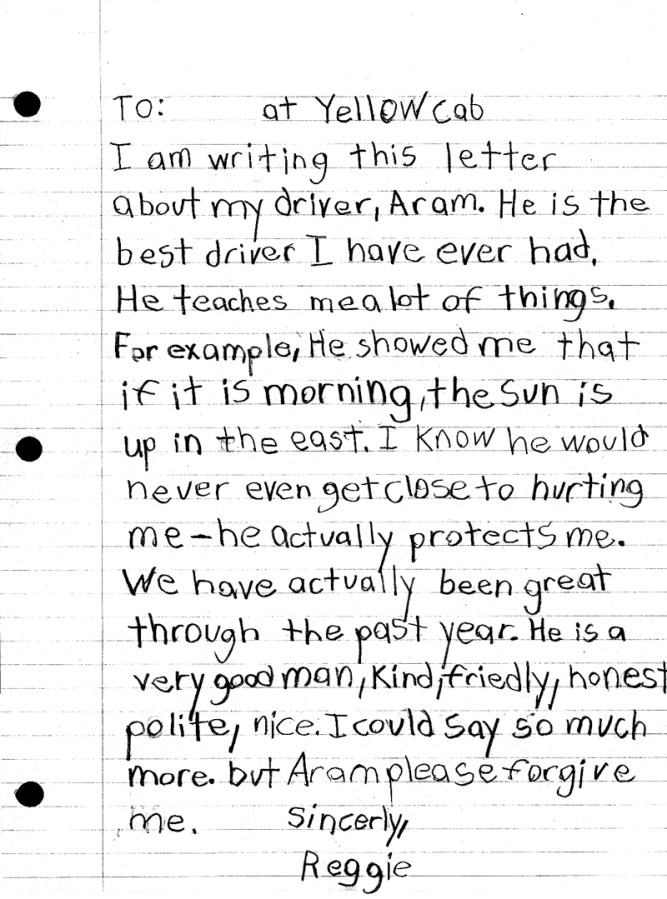 To: at Yellow Cab
I am writing this letter
about my driver, Aram. He is the
best driver I have ever had.
He teaches me a lot of things.
For example, He showed me that
if it is morning, the sun is
up in the east. I know he would
never even get close to hurting
me - he actually protects me.
We have actually been great
through the past year. He is a
very good man, kind, friedly, honest
polite, nice. I could say so much
more. but Aram please forgive
me. Sincerly,
Reggie